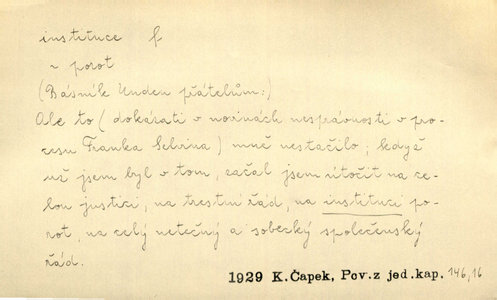 instituce f
~ porot
(Básník Unden přátelům:)
Ale to ( dokázati v novinách nesprávnosti v pro-
cesu Franka Selvina ) mně nestačilo; když
už jsem byl v tom, začal jsem útočit na ce-
lou justici, na trestní řád, na instituci po-
rot, na celý netečný a sobecký společenský
řád.
1929 K.Čapek, Pov.z jed.kap. 146,16